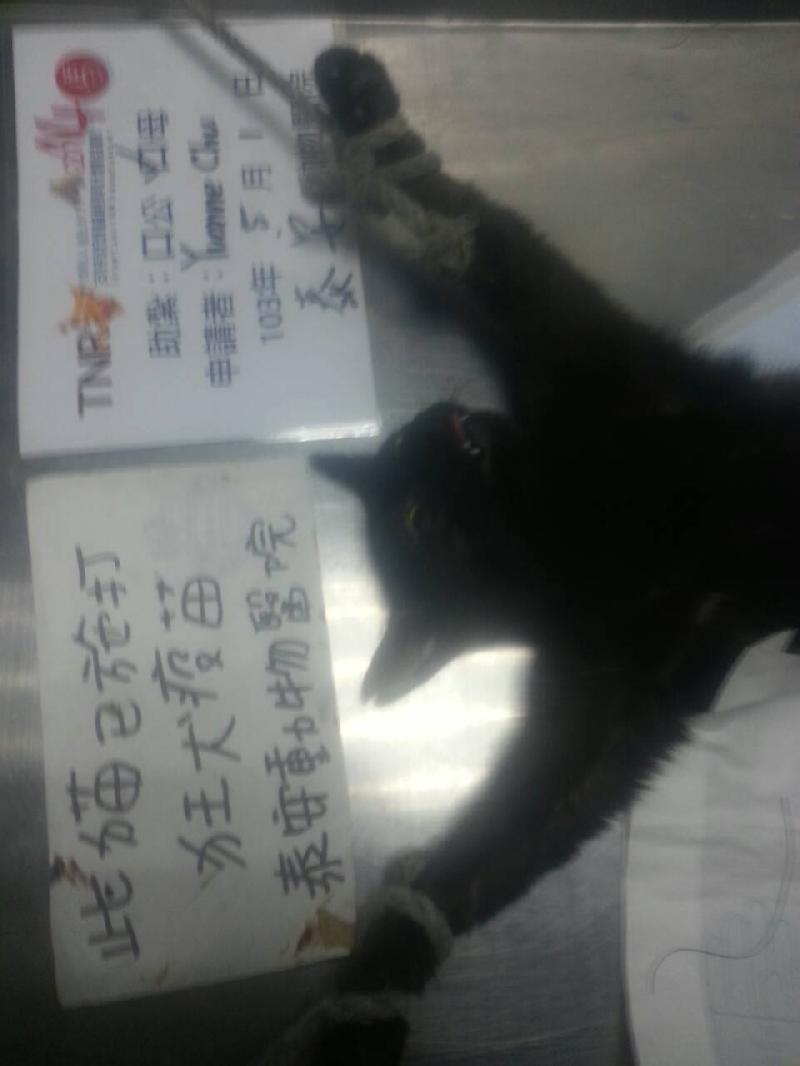 TNR
助紮：口公 口母
申請者：Yvonne Chu
103年 5月 1日
泰安動物醫院
此貓已施打
狂犬疫苗
泰安動物醫院